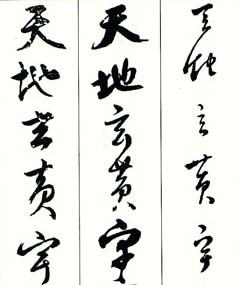 天地玄黄宇
天地玄黄宇
天地玄黄宇